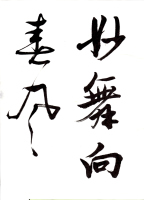 妙舞向
春风